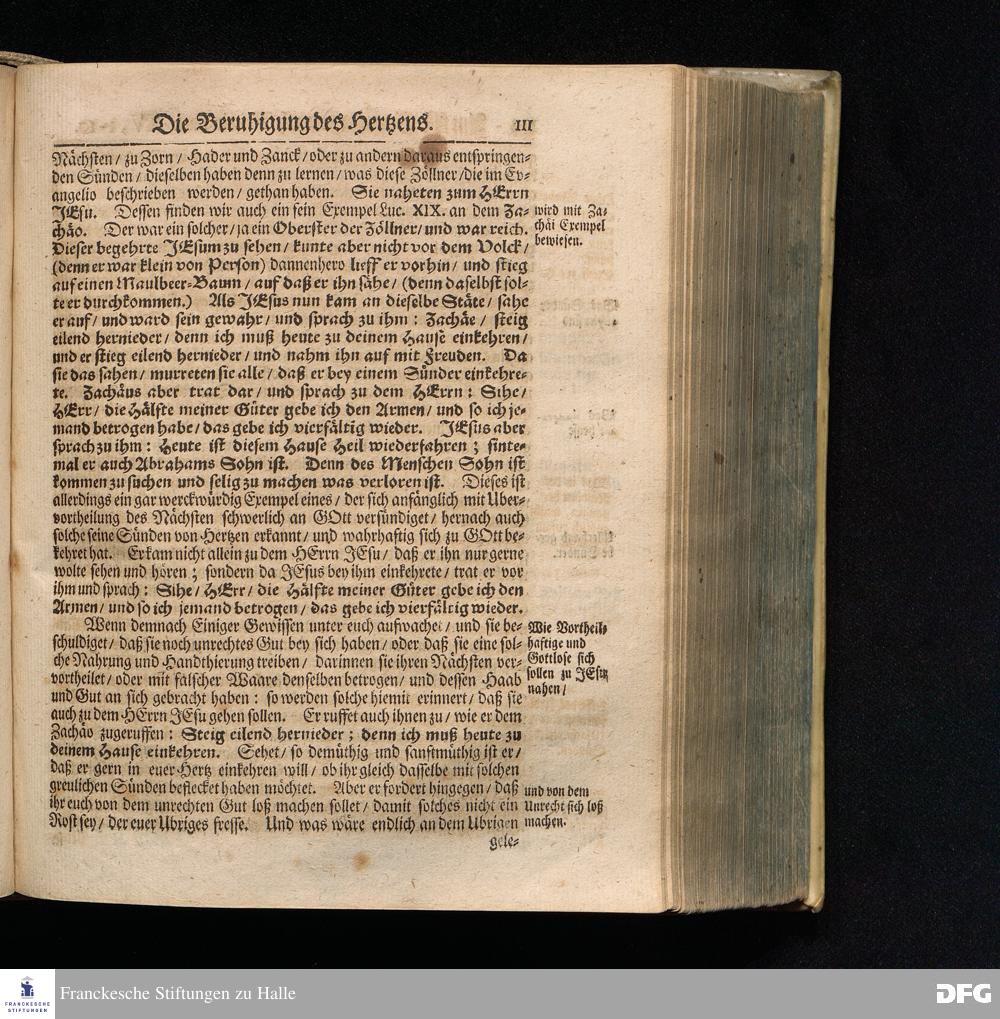 Die Beruhigung des Hertzens. 111
Nächsten / zu Zorn / Hader und Zanck / oder zu andern daraus entspringen-
den Sünden / dieselben haben denn zu lernen / was diese Zöllner / die im Ev-
angelio beschrieben werden / gethan haben. Sie naheten zum HErrn
JEsu. Dessen finden wir auch ein fein Exempel Luc. XIX. an dem Za-
chäo. Der war ein solcher / ja ein Oberster der Zöllner / und war reich.
Dieser begehrte JEsum zu sehen / kunte aber nicht vor dem Volck /
(denn er war klein von Person) dannenhero lieff er vorhin / und stieg
auf einen Maulbeer-Baum / auf daß er ihn sähe / (denn daselbst sol-
te er durchkommen.) Als JEsus nun kam an dieselbe Stäte / sahe
er auf / und ward sein gewahr / und sprach zu ihm : Zachäe / steig
eilend hernieder / denn ich muß heute zu deinem Hause einkehren /
und er stieg eilend hernieder / und nahm ihn auf mit Freuden. Da
sie das sahen / murreten sie alle / daß er bey einem Sünder einkehre-
te. Zachäus aber trat dar / und sprach zu dem HErrn : Sihe /
HErr / die Hälfte meiner Güter gebe ich den Armen / und so ich je-
mand betrogen habe / das gebe ich vierfältig wieder. JEsus aber
sprach zu ihm : Heute ist diesem Hause Heil wiederfahren ; sinte-
mal er auch Abrahams Sohn ist. Denn des Menschen Sohn ist
kommen zu suchen und selig zu machen was verloren ist. Dieses ist
allerdings ein gar merckwürdig Exempel eines / der sich anfänglich mit Uber-
vortheilung des Nächsten schwerlich an GOtt versündiget / hernach auch
solche seine Sünden von Hertzen erkannt / und wahrhaftig sich zu GOtt be-
kehret hat. Er kam nicht allein zu dem HErrn JEsu / daß er ihn nur gerne
wolte sehen und hören ; sondern da JEsus bey ihm einkehrete / trat er vor
ihm und sprach : Sihe / HErr / die Hälfte meiner Güter gebe ich den
Armen / und so ich jemand betrogen / das gebe ich vierfältig wieder.
Wenn demnach Einiger Gewissen unter euch aufwachet / und sie be-
schuldiget / daß sie noch unrechtes Gut bey sich haben / oder daß sie eine sol-
che Nahrung und Handthierung treiben / darinnen sie ihren Nächsten ver-
vortheilet / oder mit falscher Waare denselben betrogen / und dessen Haab
und Gut an sich gebracht haben : so werden solche hiemit erinnert / daß sie
auch zu dem HErrn JEsu gehen sollen. Er ruffet auch ihnen zu / wie er dem
Zachäo zugeruffen : Steig eilend hernieder ; denn ich muß heute zu
deinem Hause einkehren. Sehet / so demüthig und sanftmüthig ist er /
daß er gern in euer Hertz einkehren will / ob ihr gleich dasselbe mit solchen
greulichen Sünden beflecket haben möchtet. Aber er fordert hingegen / daß
ihr euch von dem unrechten Gut loß machen sollet / damit solches nicht ein
Rost sey / der euer Ubriges fresse. Und was wäre endlich an dem Ubrigen
gele-
wird mit Za-
chäi Exempel
bewiesen.
Wie Vortheil-
haftige und
Gottlose sich
sollen zu JEsu
nahen /
und von dem
Unrecht sich loß
machen.
FRANCKESCHE
STIFTUNGEN
Franckesche Stiftungen zu Halle
DFG